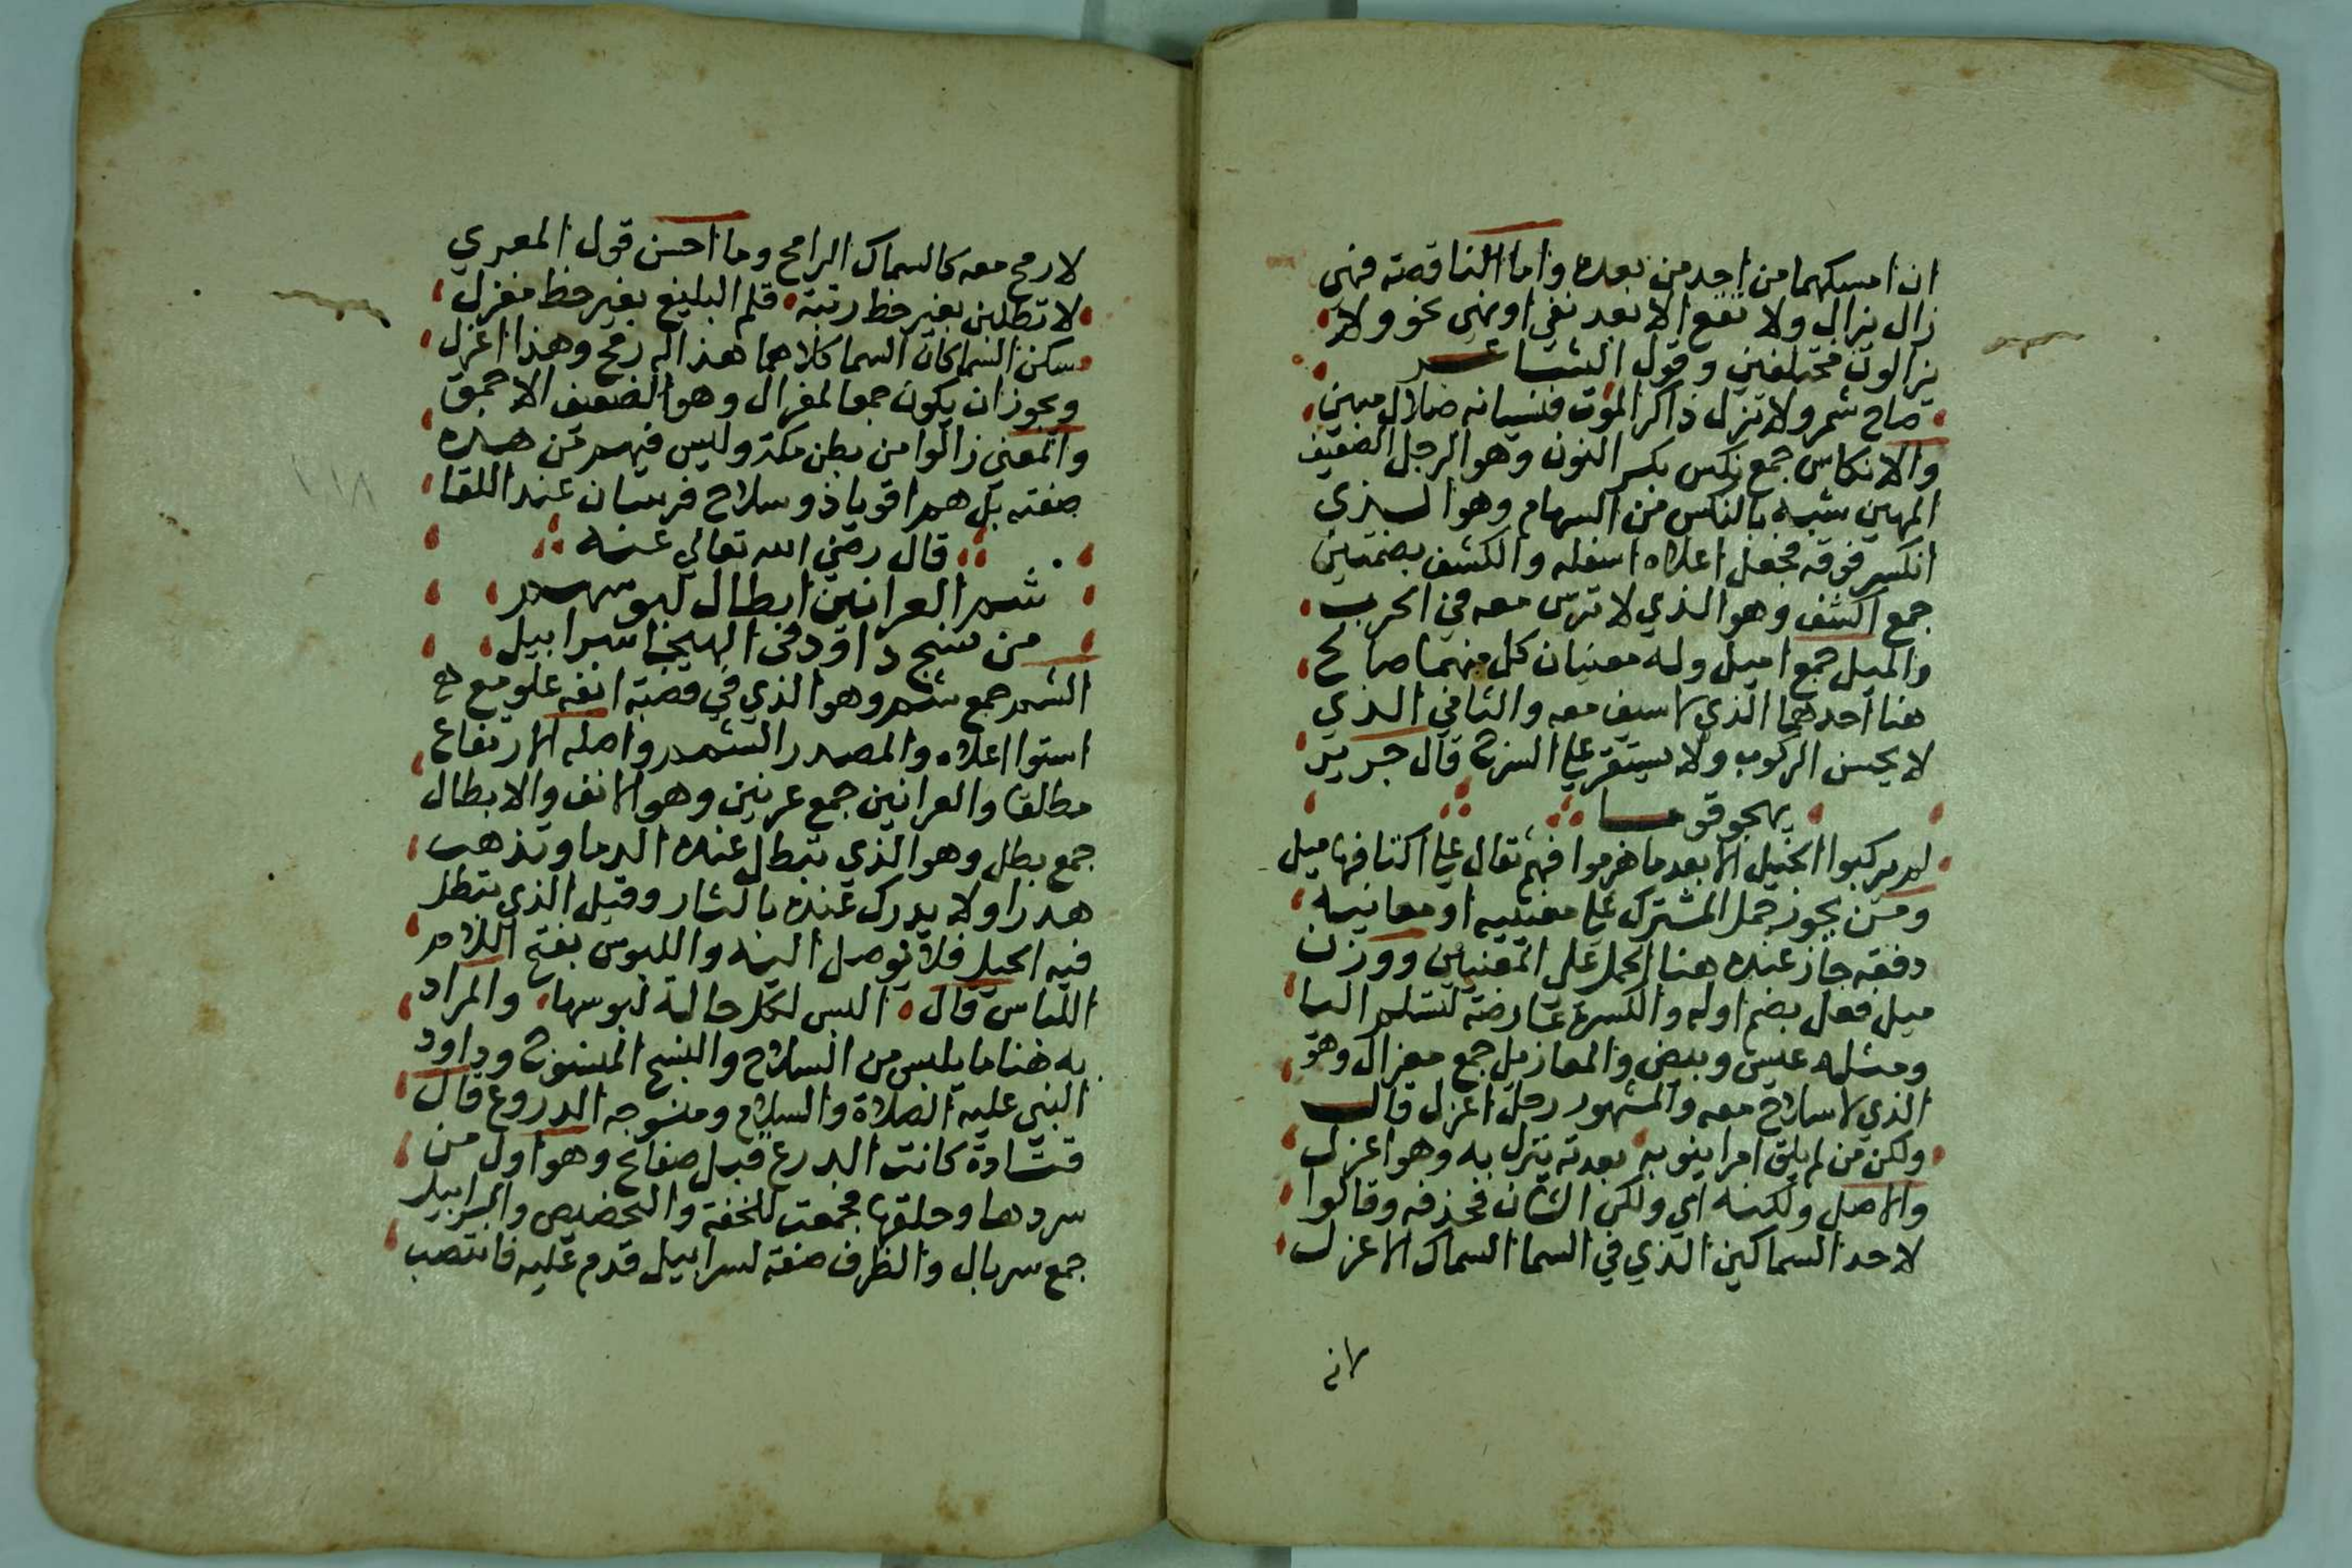 ان امسكهما من احد من بعده واما الناقصة فهي
زال يزال ولا تقع الا بعد نفي او نهي نحو ولا
يزالون مختلفين وقول الشاعر
صاح شمر ولا تزل ذاكر الموت فنسيانه ضلال مبين
والانكاس جمع نكس بكسر النون وهو الرجل الضعيف
المهين شبه بالنكس من السهام وهو الذي
انكسر فوقه فجعل اعلاه اسفله والكشف بضمتين
جمع اكشف وهو الذي لا ترس معه في الحرب
والميل جمع اميل وله معنيان كل منهما صالح
هنا احدهما الذي لا سيف معه والثاني الذي
لا يحسن الركوب ولا يستقر على السرج قال جرير
يهجو قوما
لم يركبوا الخيل الا بعد ما هرموا فهم ثقال على اكتافها ميل
ومن يجوز حمل المشترك على معنييه او معانيه
دفعه جاز عنده هنا الحمل على المعنيين ووزن
ميل فعل بضم اوله والكسرة عارضة لتسلم اليا
ومثله عيس وبيض والمعازيل جمع معزال وهو
الذي لا سلاح معه والمشهور رجل اعزل قال
ولكن من لم يلق امرا ينوبه بعدته ينزل به وهو اعزل
والاصل ولكنه اي ولكن الشان فحذفه وقالوا
لاحد السماكين الذي في السما السماك الاعزل
لانه
لا رمح معه كالسماك الرامح وما احسن قول المعري
لا تطلبن بغير حظ رتبة قلم البليغ بغير حظ مغزل
سكن السماكان السما كلاهما هذا له رمح وهذا اعزل
ويجوز ان يكون جمعا لمغزال وهو الضعيف الاحمق
والمعني زالوا من بطن مكة وليس فيهم من هذه
صفته بل هم اقويا ذو سلاح فرسان عند اللقا
قال رضي الله تعالي عنه
شم العرانين ابطال لبوسهم
من نسج داود في الهيجا سرابيل
الشم جمع اشم وهو الذي في قصبة انفه علو مع
استوا اعلاه والمصدر الشمم واصله الارتفاع
مطلقا والعرانين جمع عرنين وهو الانف والابطال
جمع بطل وهو الذي تبطل عنده الدما وتذهب
هدرا ولا يدرك عنده بالثار وقيل الذي تبطل
فيه الحيل فلا يوصل اليه واللبوس بفتح اللام
اللباس قال البس لكل حالة لبوسها والمراد
به هنا ما يلبس من السلاح والنسج المنسوج وداود
النبي عليه الصلاة والسلام ومنسوجه الدروع قال
قتادة كانت الدرع قبل صفائح وهو اول من
سردها وحلقها فجمعت للخفة والتحصين والسرابيل
جمع سربال والظرف صفة لسرابيل قدم عليه فانتصب